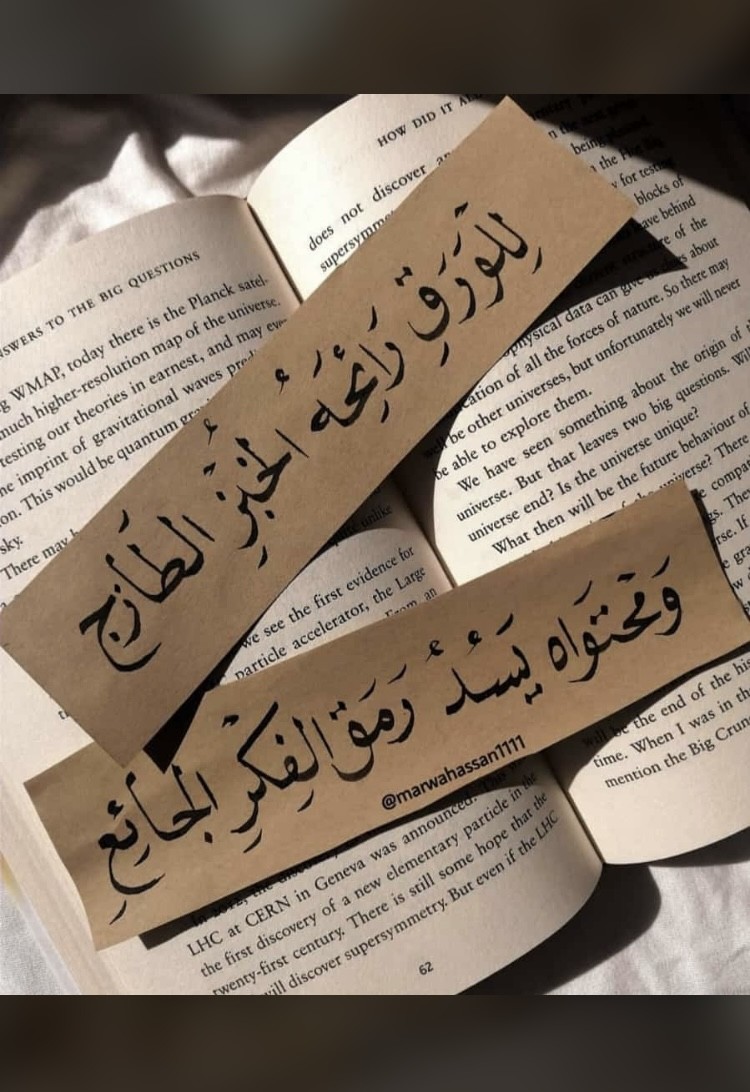 لِلورَقِ رَائِحَة الخُبْزِ الطَازَج
وَمُحتَوَاه يَسُدُّ رَمَقَ الفِكْرِ الجَائِعِ
@marwahassan1111
SWERS TO THE BIG QUESTIONS
g WMAP, today there is the Planck satel-
much higher-resolution map of the universe.
testing our theories in earnest, and may
he imprint of gravitational waves
on. This would be quantum
sky.
There may
HOW DID IT
does not discover
supersymme
we see the first evidence for
particle accelerator, the Large
From an
LHC at CERN in Geneva was announced.
the first discovery of a new elementary particle in the
twenty-first century. There is still some hope that the
will discover supersymmetry. But even if the LHC
62
being
for testing
blocks of
behind
of the
about
physical data can give
ication of all the forces of nature. So there may
be other universes, but unfortunately we will never
be able to explore them.
We have seen something about the origin of
universe. But that leaves two big questions.
universe end? Is the universe unique?
What then will be the future behaviour of
universe? There
the end of the
time. When I was in
mention the Big Crun